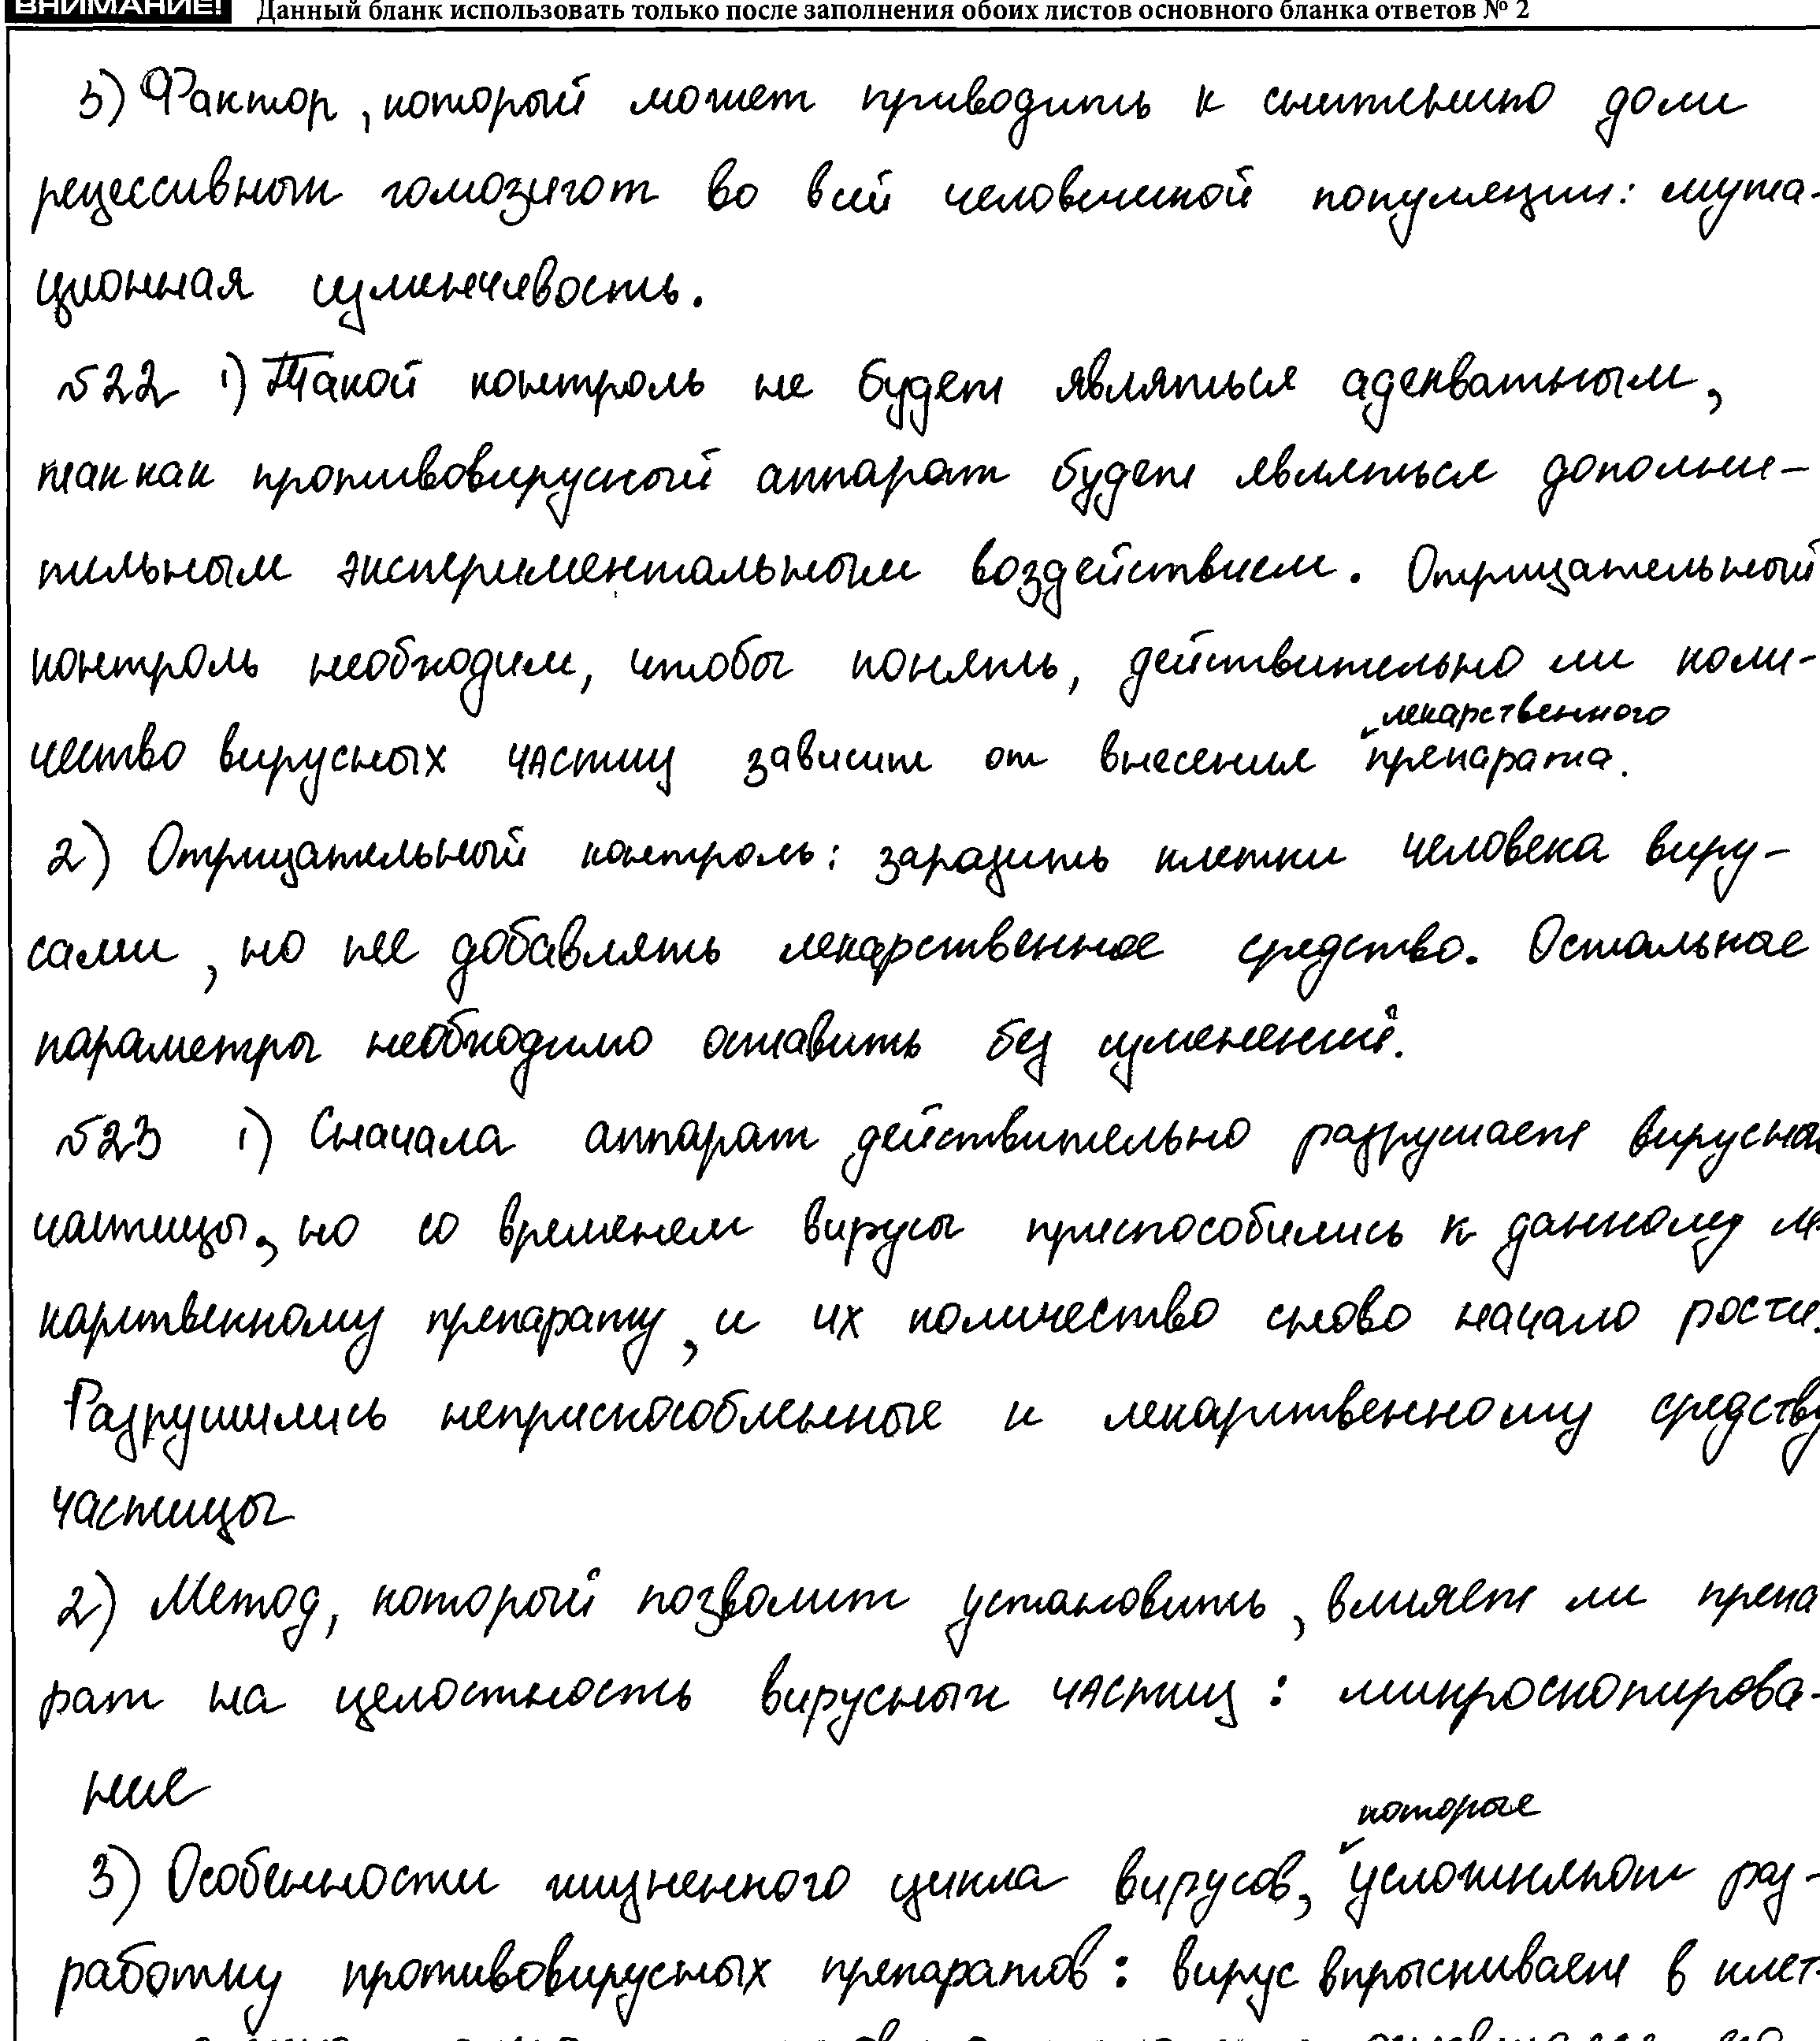 ВНИМАНИЕ! Данный бланк использовать только после заполнения обоих листов основного бланка ответов № 2
3) Фактор, который может приводить к снижению доли
рецессивных гомозигот во всей человеческой популяции: мута-
ционная изменчивость.
№22 1) Такой контроль не будет являться адекватным,
так как противовирусный аппарат будет являться дополни-
тельным экспериментальным воздействием. Отрицательный
контроль необходим, чтобы понять, действительно ли коли-
чество вирусных частиц зависит от внесения лекарственного препарата.
2) Отрицательный контроль: заразить клетки человека виру-
сами, но не добавлять лекарственное средство. Остальные
параметры необходимо оставить без изменений.
№23 1) Сначала аппарат действительно разрушает вирусные
частицы, но со временем вирусы приспособились к данному ле-
карственному препарату, и их количество снова начало расти.
Разрушились неприспособленные к лекарственному средству
частицы
2) Метод, который позволит установить, влияет ли препа
рат на целостность вирусных частиц: микроскопирова-
ние
3) Особенности жизненного цикла вирусов, которые усложняют раз-
работку противовирусных препаратов: вирус впрыскивает в клет-